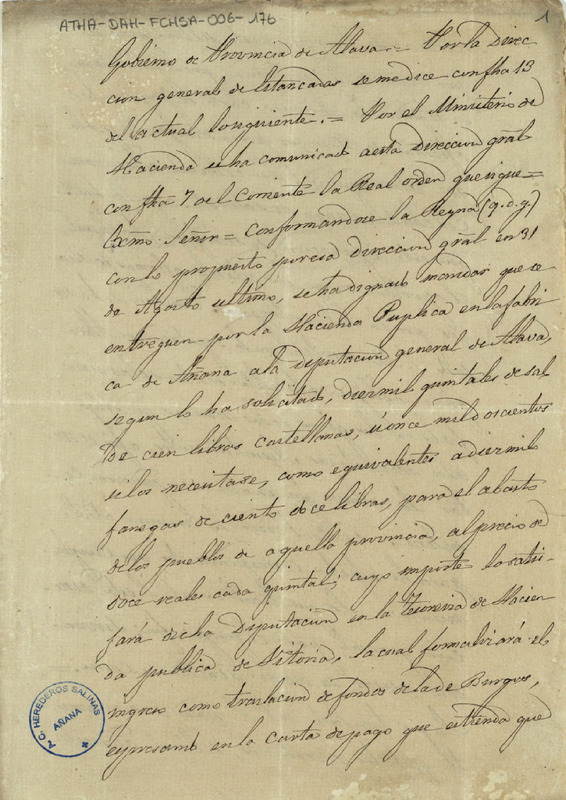 ATHA-DAH-FCHSA-006-176
1
Gobierno de Provincia de Alava = Por la Direc
cion general de Estancadas se me dice con fha 13
del actual lo siguiente. = Por el Ministerio de
Hacienda se ha comunicado a esta Direccion gral
con fha 7 del Corriente la Real orden que sigue =
Exmo. Señor = Conformandose la Reyna (q.d.g.)
con lo propuesto por esa direccion gral en 31
de Agosto ultimo, se ha dignado mandar que se
entreguen por la Hacienda Puplica en la fabri
ca de Añana a la diputacion general de Alava,
segun lo ha solicitado, diez mil quintales de sal
de cien libras castellanas, ú once mil doscientos
si los necesitase, como equivalentes a diez mil
fanegas de ciento doce libras, para el abasto
de los pueblos de aquella provincia, al precio de
doce reales cada quintal; cuyo importe lo satis-
fará dicha Diputacion en la tesoreria de Hacien
da publica de Vitoria, la cual formalizará el
ingreso como traslacion de fondos de la de Burgos,
espresando en la Carta de pago que estienda que
T.C. HEREDEROS SALINAS
AÑANA